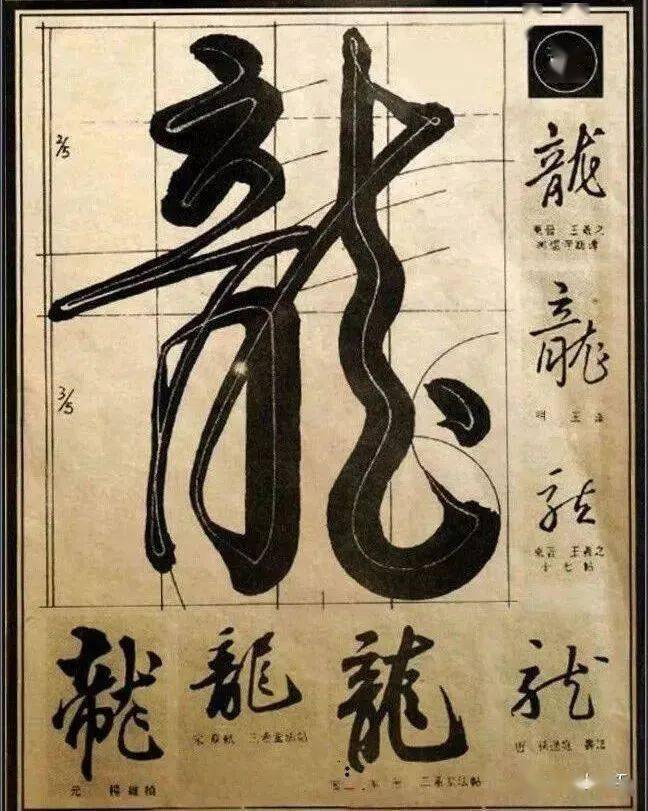 龍
2/5
3/5
龍
東晉 王羲之
龍
明 王
龍
東晉 王羲之
十七帖
龍
元 楊維楨
龍
宋
龍
三希堂法帖
龍
唐 孫過庭 書譜